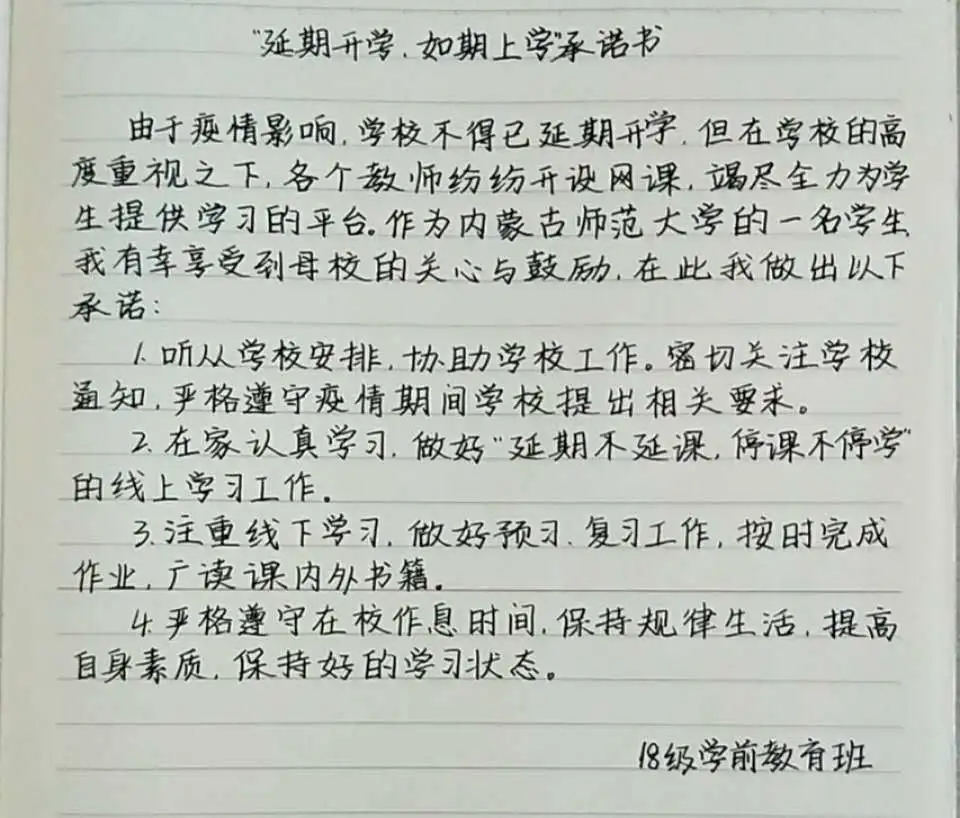 “延期开学,如期上学”承诺书
由于疫情影响,学校不得已延期开学,但在学校的高
度重视之下,各个教师纷纷开设网课,竭尽全力为学
生提供学习的平台。作为内蒙古师范大学的一名学生,
我有幸享受到母校的关心与鼓励,在此我做出以下
承诺:
1.听从学校安排,协助学校工作。密切关注学校
通知,严格遵守疫情期间学校提出相关要求。
2.在家认真学习,做好“延期不延课,停课不停学”
的线上学习工作。
3.注重线下学习,做好预习、复习工作,按时完成
作业,广读课内外书籍。
4.严格遵守在校作息时间,保持规律生活,提高
自身素质,保持好的学习状态。
18级学前教育班